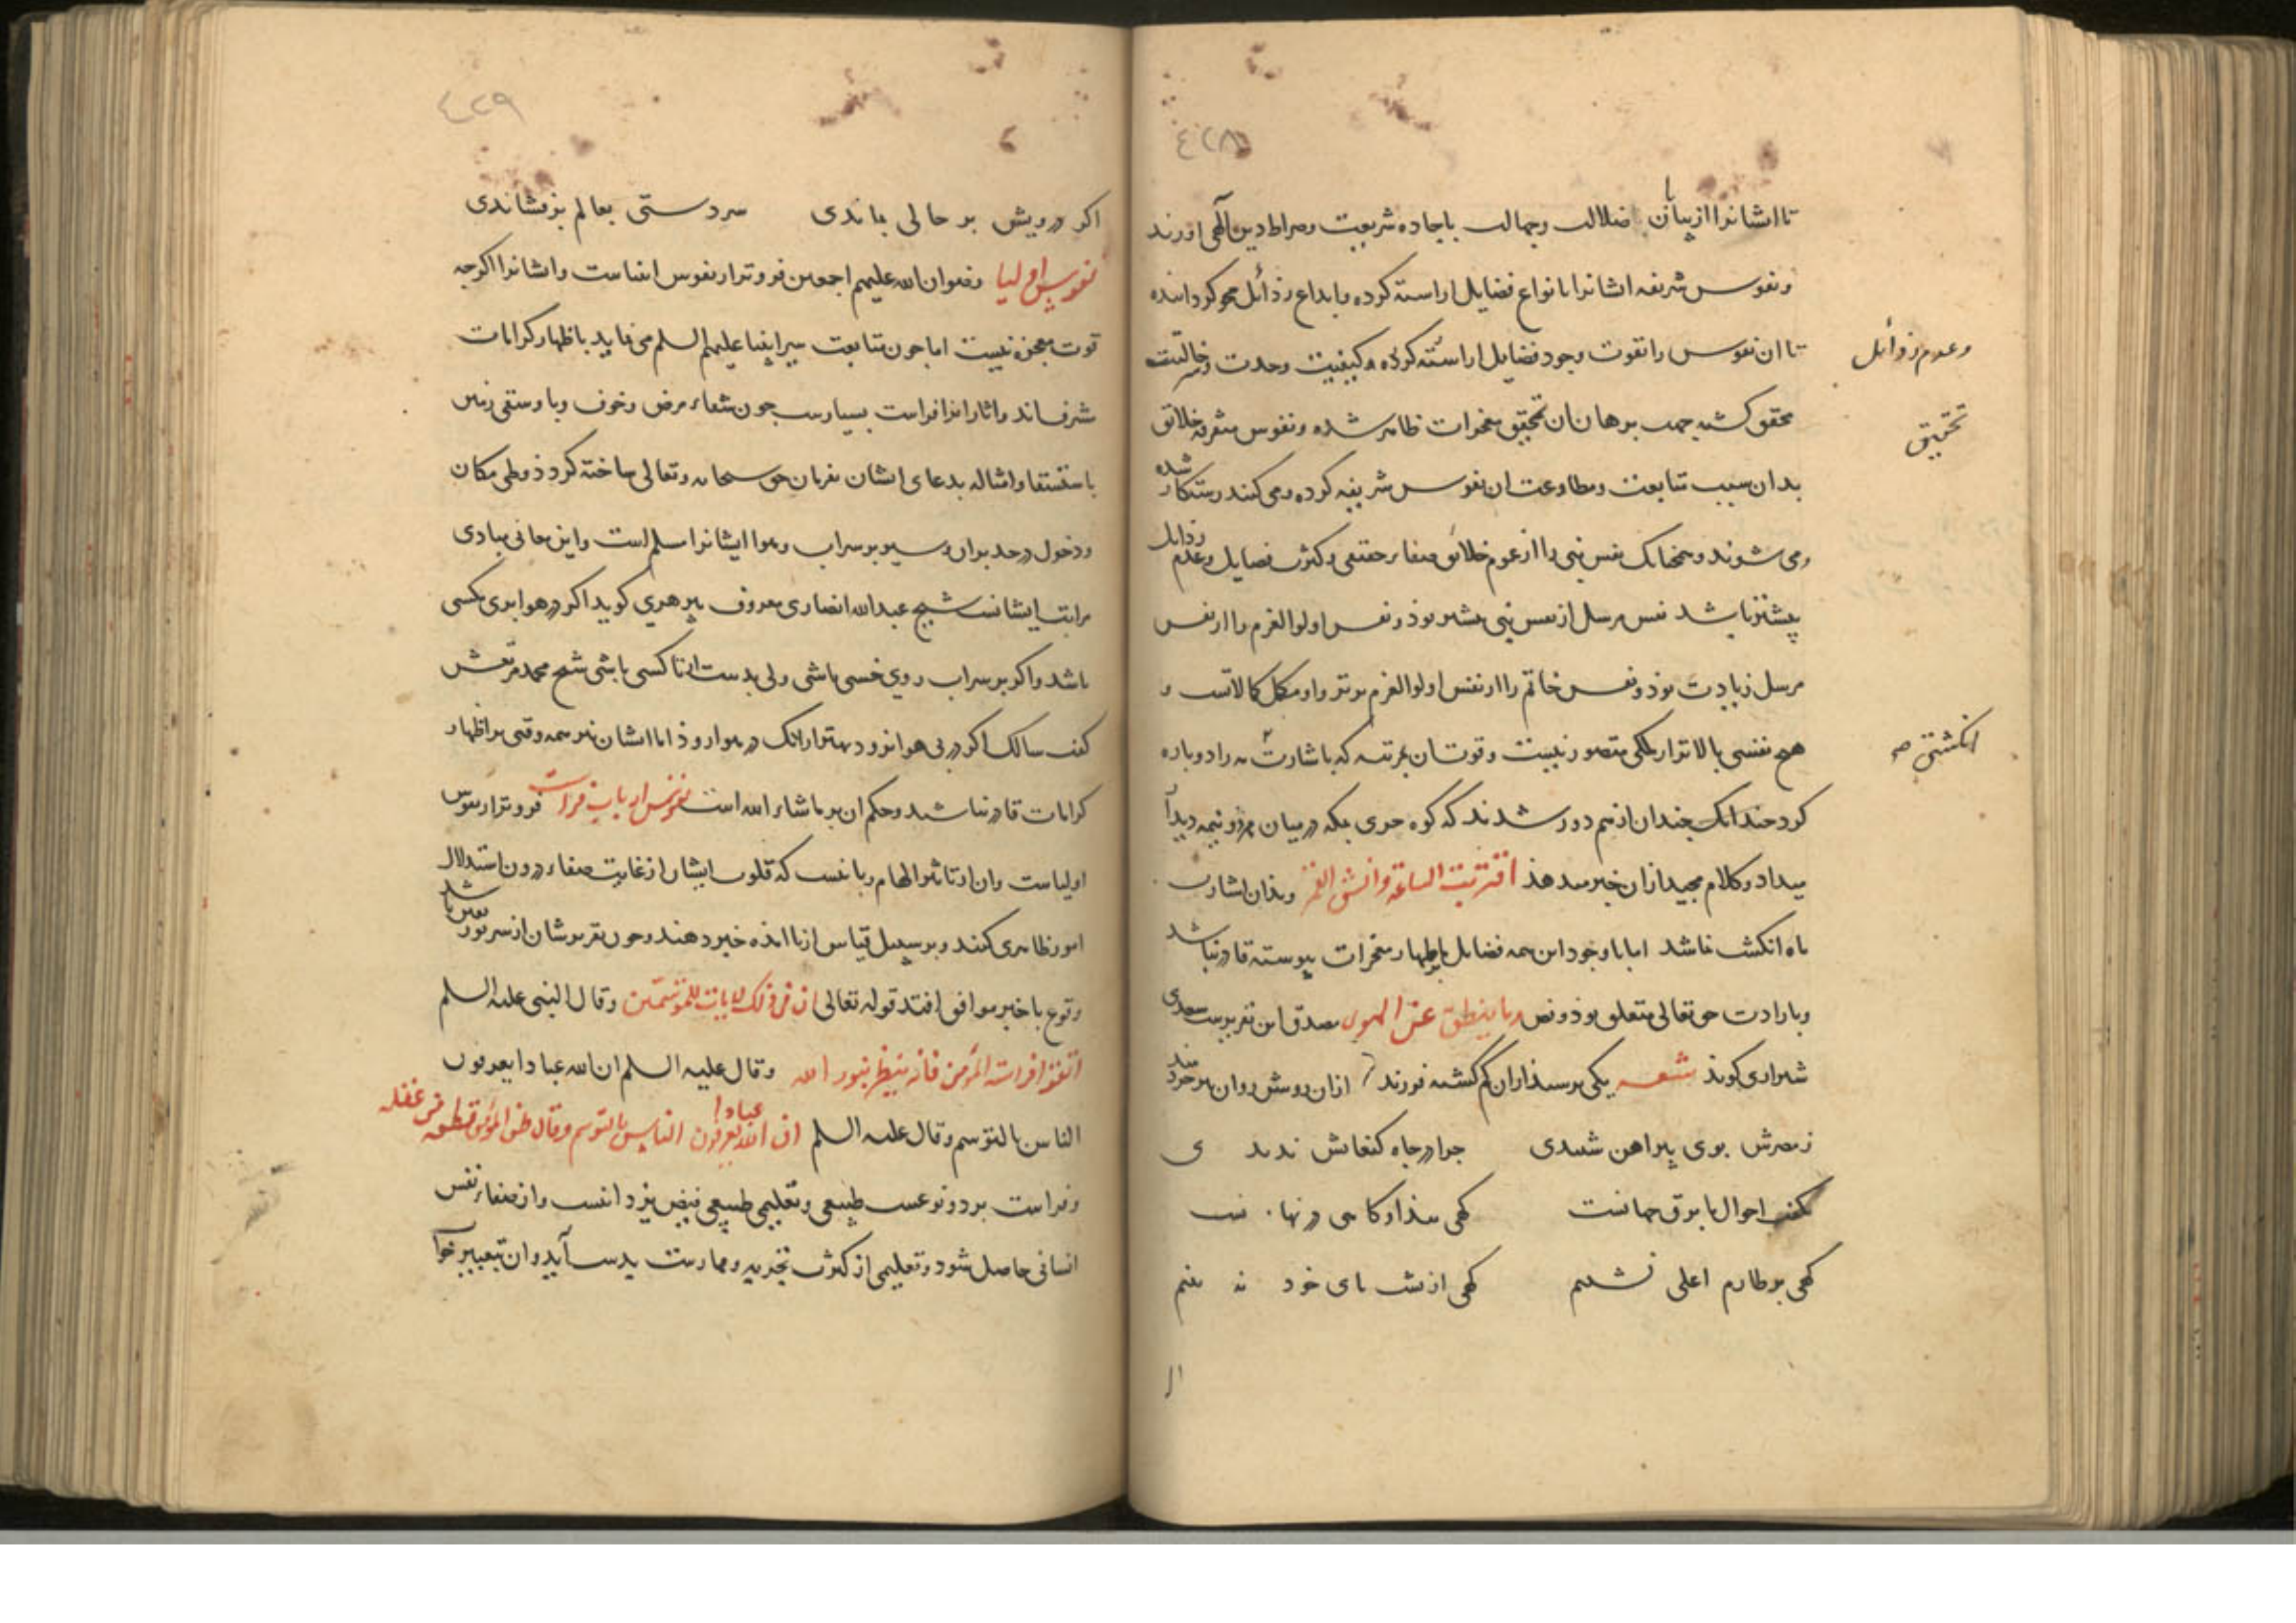 ٤٢٨
تا ایشانرا از بیابان ضلالت وجهالت باجاده شریعت وصراط دین الهی اورند
ونفوس شریفه ایشانرا بانواع فضایل اراسته کرده وابداع رذائل محو کردانیده
تا ان نفوس را بقوت وجود فضایل اراسته کرده وکیفیت وحدت
وعدم رذائل
محقق کشته جهت برهان ان تحقیق معجزات ظاهر شده ونفوس متفرقه خلائق
تحقیق
بدان سبب متابعت ومطاوعت ان نفوس شریفه کرده ومی کنند ورستکار شده
ومی شوند وهمچنانک نفس نبی را از عموم خلائق صفاء حقیقی وکثرت فضایل وعدم رذایل
بیشتر باشد نفس مرسل از نفس نبی بیشتر بوذ ونفس اولوالعزم را از نفس
مرسل زیادت بوذ ونفس خاتم را از نفس اولوالعزم برتر واو مکمل کمالاتست و
هیچ نفسی بالاتر از ملکی متصور نیست وقوت ان بمرتبه که باشارت مه را دو پاره
انکشتی صه
کرد چندانک چندان از هم دور شدند که کوه حری بمکه در میان هر دو نیمه دیدا
میداد وکلام مجید ازان خبر میدهذ اقتربت الساعة وانشق القمر وبذان اشارت
ماه انکشت نما شد اما با وجود این همه فضایل باظهار معجزات پیوسته قادر نباشد
وبارادت حق تعالی متعلق بوذ ونص وما ینطق عن الهوی مصدق این تقریرست سعدی
شیرازی کوید شعر یکی پرسید ازان کم کشته فرزند از ان روشن روان پیر خردمند
زمصرش بوی پیراهن شنیدی چرا در چاه کنعانش ندیدی
بکفت احوال ما برق جهانست کهی پیذا وکاهی در نهانست
کهی بر طارم اعلی نشینم کهی از پشت پای خود نه بینم
٤٢٩
اکر درویش بر حالی بماندی سر دستی بعالم برفشاندی
نفوس اولیا رضوان الله علیهم اجمعین فروتر از نفوس انبیاست وایشانرا اکرچه
قوت معجزه نیست اما چون متابعت سیر انبیا علیهم السلم می نماید باظهار کرامات
مشرف اند واثار انرا افرادست بسیارست چون شفاء مرض وخوف وبا وسقی زمین
باستسقا وامثاله بدعای ایشان بفرمان حق سبحانه وتعالی ساخته کردذ وطی مکان
ودخول در حدیران وسیر بر سر اب وهوا ایشانرا مسلم است واین معانی مبادی
مراتب ایشانست شیخ عبدالله انصاری معروف بپیر هری کوید اکر در هوا پری مکسی
باشد واکر بر سر اب روی خسی باشی دلی بدست ار تا کسی باشی شیخ محمد مرتعش
کفت سالک اکر در پی هوا نرود بهتر ازانک در هوا روذ اما ایشان نیز همه وقتی بر اظهار
کرامات قادر نباشند وحکم ان بر ما شاء الله است نفوس ارباب فراست فروتر از نفوس
اولیاست وان از تاثیر الهام ربانیست که قلوب ایشان از غایت صفاء درون استدلال
امور ظاهری کنند وبر سبیل قیاس از ماانده خبر دهند وچون تقریرشان از سر نور یقین باشد
وقوع با خبر موافق افتد قوله تعالی ان فی ذلک لایات للمتوسمین وقال النبی علیه السلم
اتقوا فراسة المؤمن فانه ینظر بنور الله وقال علیه السلم ان لله عبادا یعرفون
الناس بالتوسم وقال علیه السلم ان لله عبادا یعرفون الناس بالتوسم وقال ظن المؤمن
وفراست بر دو نوعست طبیعی وتعلیمی طبیعی فیض یزدانست واز صفاء نفس
انسانی حاصل شود وتعلیمی از کثرت تجربه وممارست بدست آید وان تعبیر خوا